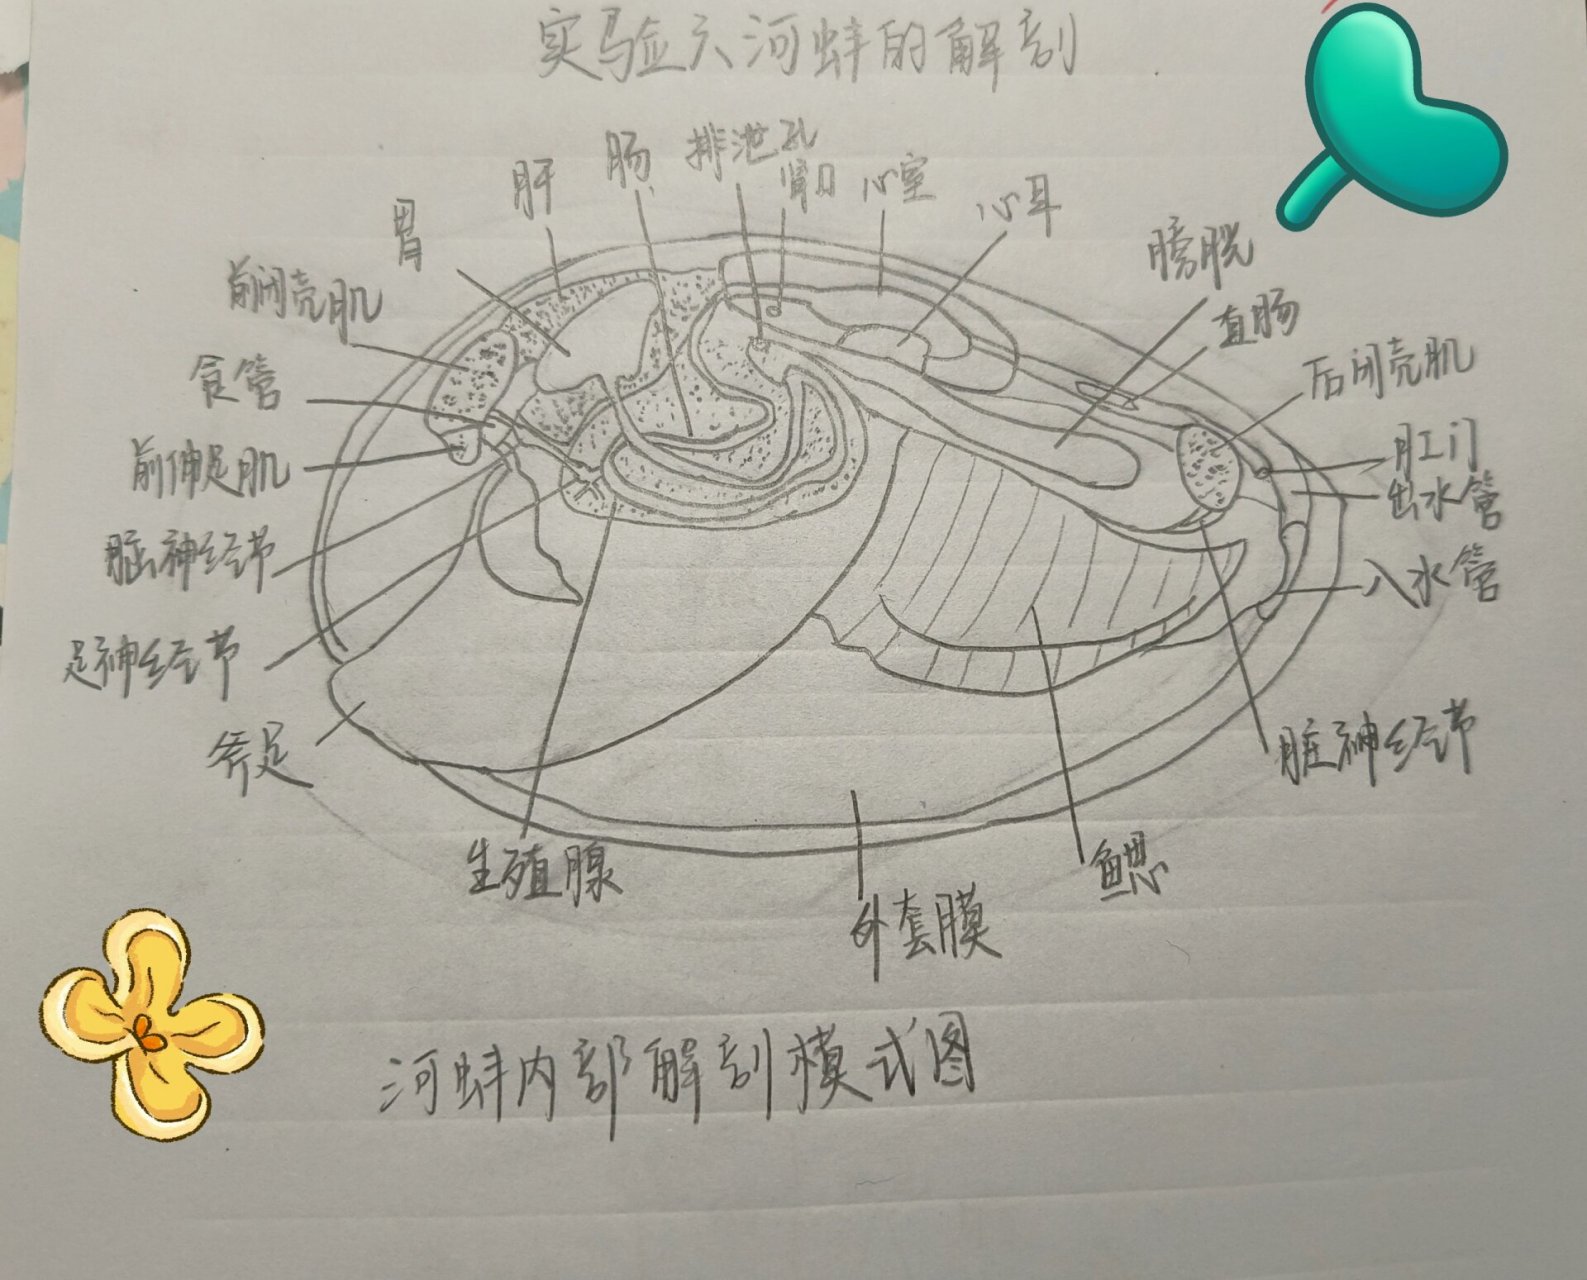 实验六河蚌的解剖
排泄孔
肠
肾口
心室
肝
心耳
胃
膀胱
前闭壳肌
直肠
后闭壳肌
食管
肛门
前伸足肌
出水管
脑神经节
入水管
足神经节
斧足
脏神经节
生殖腺
鳃
外套膜
河蚌内部解剖模式图